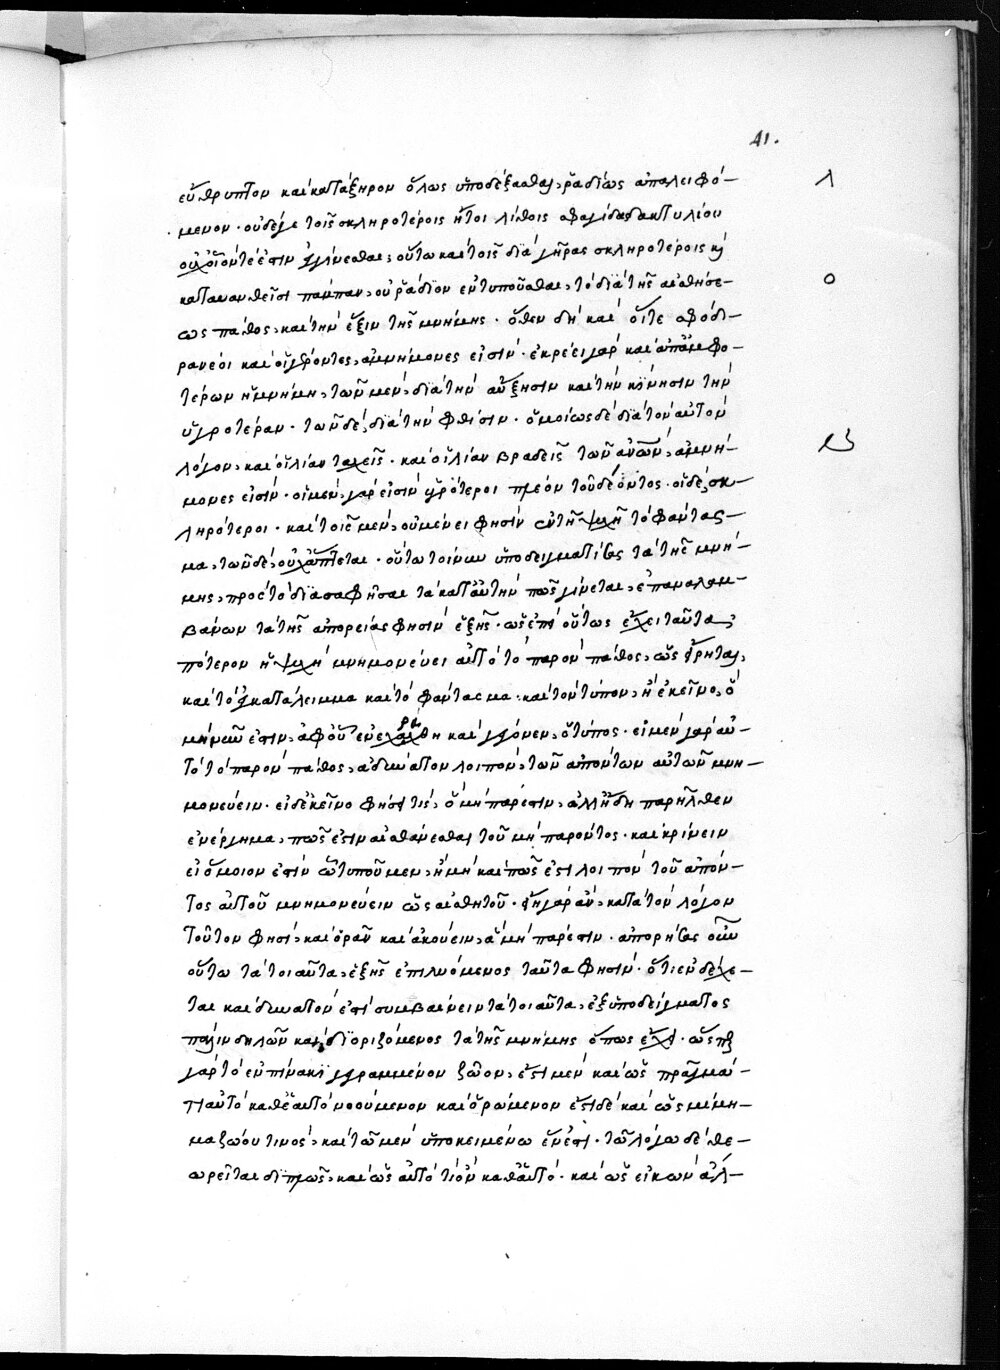 41.
εὔθρυπτον καὶ κατάξηρον ὅλως ὑποδέξασθαι, ῥᾳδίως ἀπαλειφό-
μενον· οὐδέ γε τοῖς σκληροτέροις ἤτοι λίθοις σφαγίδας δακτυλίου
οὐχ οἷόν τέ ἐστιν ἐγγίνεσθαι, οὕτω καὶ τοῖς διὰ γῆρας σκληροτέροις κỳ
καταυανθεῖσι πάμπαν, οὐ ῥᾴδιον ἐντυποῦσθαι, τὸ διὰ τῆς αἰσθήσε-
ως πάθος, καὶ τὴν ἕξιν τῆς μνήμης· ὅθεν δὴ καὶ οἵτε σφόδ-
ρα νέοι καὶ οἱ γέροντες, ἀμνήμονες εἰσίν· ἐκρέει γὰρ καὶ ἀπ' ἀμφο-
τέρων ἡ μνήμη, τῶν μὲν, διὰ τὴν αὔξησιν καὶ τὴν κίνησιν τὴν
ὑγροτέραν· τῶν δὲ, διὰ τὴν φθίσιν· ὁμοίως δὲ διὰ τὸν αὐτὸν
λόγον, καὶ οἱ λίαν ταχεῖς· καὶ οἱ λίαν βραδεῖς τῶν ἀνῶν, ἀμνή-
μονες εἰσίν· οἱ μὲν, γάρ εἰσιν ὑγρότεροι πλέον τοῦ δέοντος· οἱ δὲ, σκ-
ληρότεροι· καὶ τοῖς μὲν, οὐ μένει φησὶν ἐν τῇ ψυχῇ τὸ φάντασ-
μα, τῶν δὲ, οὐχ ἅπτεται· οὕτω τοίνυν ὑποδειγματίσας τὰ τῆς μνή-
μης, πρὸς τὸ διασαφῆσαι τὰ κατ' αὐτὴν πῶς γίνεται, ἐπαναλαμ-
βάνων τὰ τῆς ἀπορείας φησὶν ἑξῆς· ὡς ἐπεὶ οὕτως ἔχει ταῦτα,
πότερον ἡ ψυχὴ μνημονεύει αὐτὸ τὸ παρὸν πάθος, ὡς εἴρηται,
καὶ τὸ ἐγκατάλειμμα καὶ τὸ φάντασμα· καὶ τὸν τύπον, ἢ ἐκεῖνο, ὃ
μὴ νῦν ἐστιν, ἀφ' οὗ ἐνεχαράχθη καὶ γέγονεν, ὁ τύπος· εἰ μὲν γὰρ αὐ-
τὸ τὸ παρὸν πάθος, ἀδύνατον λοιπὸν, τῶν ἀπόντων αὐτῶν μνη-
μονεύειν· εἰ δ' ἐκεῖνο φήσει τὶς, ὃ μὴ πάρεστιν, ἀλλ' ἤδη παρῆλθεν
ἐνέργημα, πῶς ἐστιν αἰσθάνεσθαι τοῦ μὴ παρόντος· καὶ κρίνειν
εἰ ὅμοιον ἐστὶν ᾧ τυποῦμεν, ἢ μὴ καὶ πῶς ἐστὶ λοιπὸν τοῦ ἀπόν-
τος αὐτοῦ μνημονεύειν ὡς αἰσθητοῦ· εἴη γὰρ ἂν, κατὰ τὸν λόγον
τοῦτον φησὶ, καὶ ὁρᾶν καὶ ἀκούειν, ἃ μὴ πάρεστιν· ἀπορήσας οὖν
οὕτω τὰ τοιαῦτα, ἑξῆς ἐπιλυόμενος ταῦτα φησίν· ὅτι ἐνδέχε-
ται καὶ δυνατὸν ἐστὶ συμβαίνειν τὰ τοιαῦτα, ἐξ ὑποδείγματος
πάλιν δηλῶν καὶ διοριζόμενος τὰ τῆς μνήμης ὅπως ἔχει· ὥσπερ
γὰρ τὸ ἐν πίνακι γεγραμμένον ζῷον, ἔστι μὲν καὶ ὡς πρᾶγμά
τι αὐτὸ καθ' ἑαυτὸ νοούμενον καὶ ὁρώμενον ἔστι δὲ καὶ ὡς μίμη-
μα ζώου τινὸς, καὶ τῷ μὲν ὑποκειμένω ἕν ἐστι· τῷ λόγω δὲ θε-
ωρεῖται διπλῶς, καὶ ὡς αὐτό τι ὂν καθ' αὑτό· καὶ ὡς εἰκὼν ἀλ-